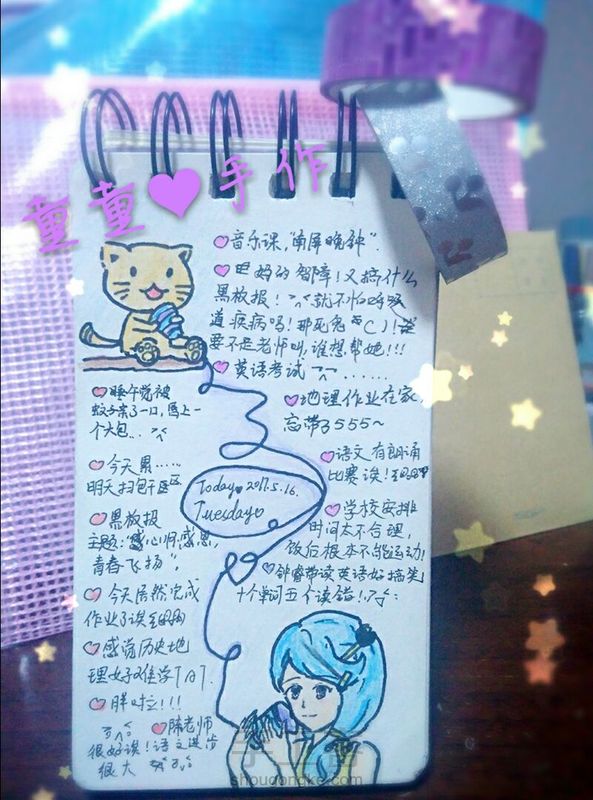 童童♥手作
音乐课,"南屏晚钟".
智障!又搞什么
黑板报!就不怕呼吸
道疾病吗!那死鬼
要不是老师叫,谁想帮她!!!
英语考试
地理作业在家
忘带了5555~
语文有朗诵
比赛诶!
学校安排
时间太不合理,
饭后根本不能运动!
钟睿带读英语好搞笑
十个单词五个读错!
睡午觉被
蚊子亲了一口,马上一
个大包...
今天累.....
明天扫包干区
Today 2017.5.16.
Tuesday
黑板报
主题:"感心啊,感恩,
青春飞扬"
今天居然完成
作业了诶
感觉历史地
理好难学
胖啦!!!
陈老师
很好诶!语文进步
很大
shougongke.com